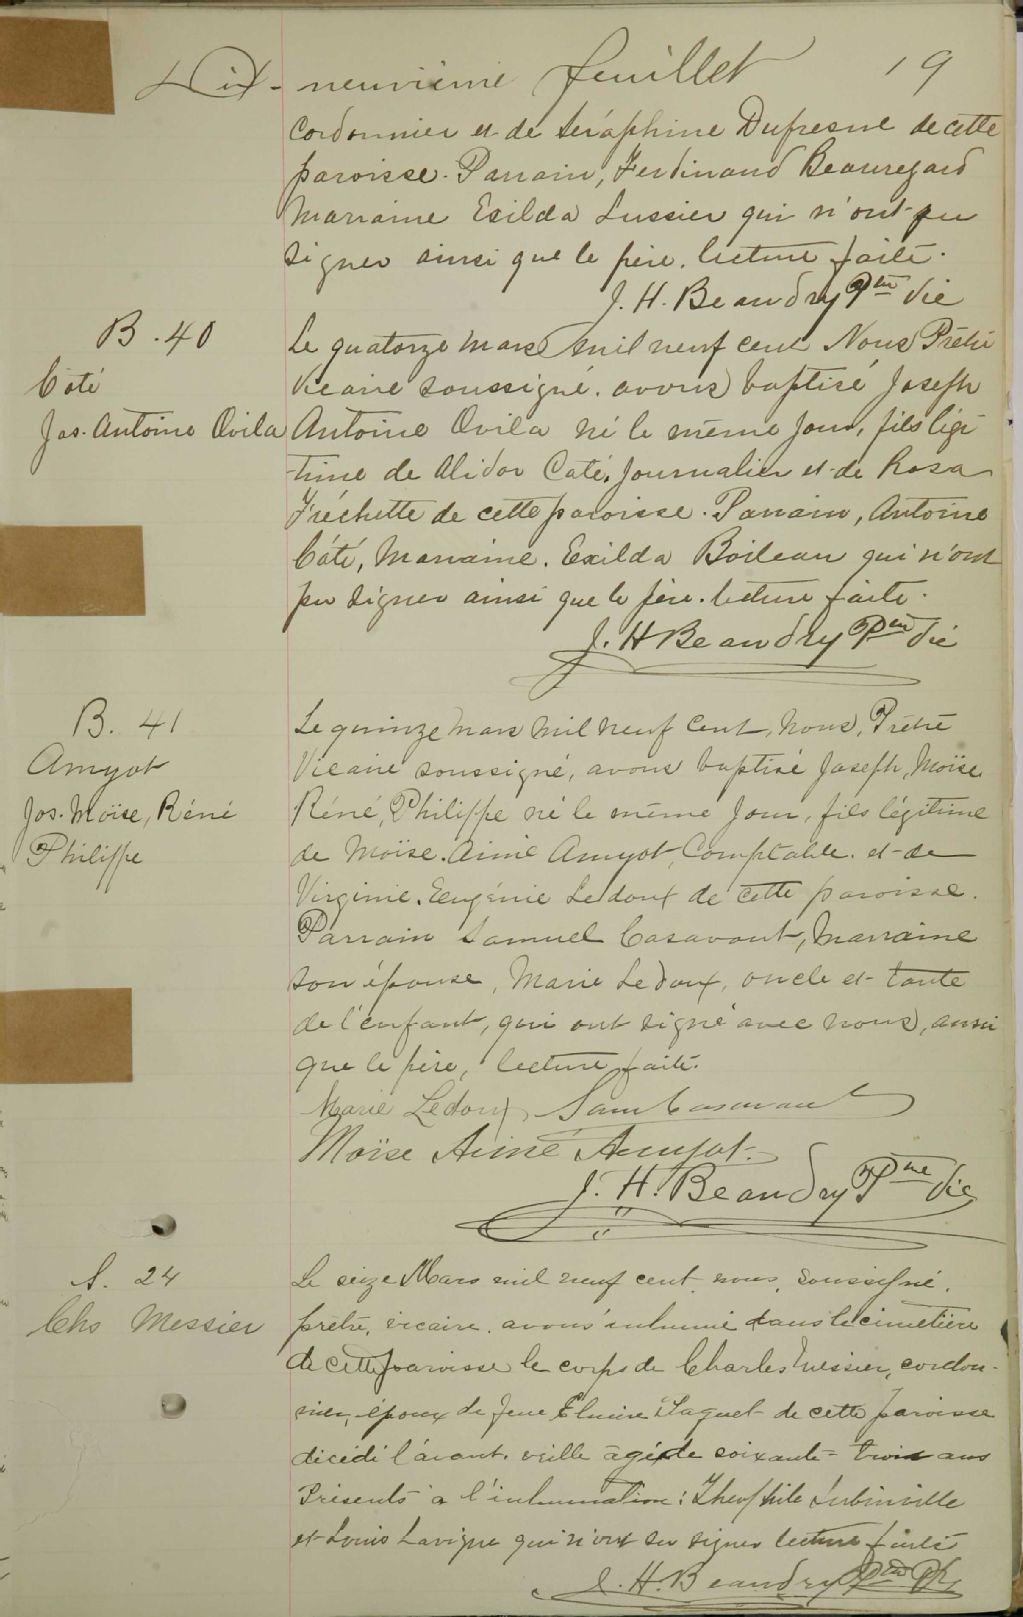 Dix-neuvième feuillet 19
Cordonnier et de Séraphine Dufresne de cette
paroisse. Parrain, Ferdinand Beauregard
Marraine Exilda Lussier qui n'ont pu
signer ainsi que le père. lecture faite.
J. H. Beaudry Ptre Vic
B. 40
Côté
Jos. Antoine Ovila
Le quatorze mars mil neuf cent Nous Prêtre
Vicaire soussigné. avons baptisé Joseph
Antoine Ovila né le même jour, fils légi-
time de Alidor Coté, Journalier et de Rosa
Fréchette de cette paroisse. Parrain, Antoine
Côté, Marraine. Exilda Boileau qui n'ont
pu signer ainsi que le père. lecture faite.
J. H Beaudry Ptre Vic
B. 41
Amyot
Jos. Moïse, Réné
Philippe
Le quinze mars mil neuf cent, Nous, Prêtre
Vicaire soussigné, avons baptisé Joseph, Moïse
Réné, Philippe né le même jour, fils légitime
de Moïse. Aimé Amyot, Comptable. et de
Virginie. Eugénie Ledoux de cette paroisse.
Parrain Samuel Casavant, Marraine
son épouse, Marie Ledoux, oncle et tante
de l'enfant, qui ont signé avec nous, ainsi
que le père, lecture faite.
Marie Ledoux Sam Casavant
Moïse Aimé Amyot.
J. H. Beaudry Ptre Vic
S. 24
Chs Messier
Le seize Mars mil neuf cent nous, soussigné,
prêtre, vicaire. avons inhumé dans le cimetière
de cette paroisse le corps de Charles Messier, cordon-
nier, époux de feue Elmire Paquet de cette paroisse
décédé l'avant. veille âgé de soixante-trois ans
Présents à l'inhumation: Théophile Lubinville
et Louis Lavigne qui n'ont su signer lecture faite
J. H. Beaudry Ptre